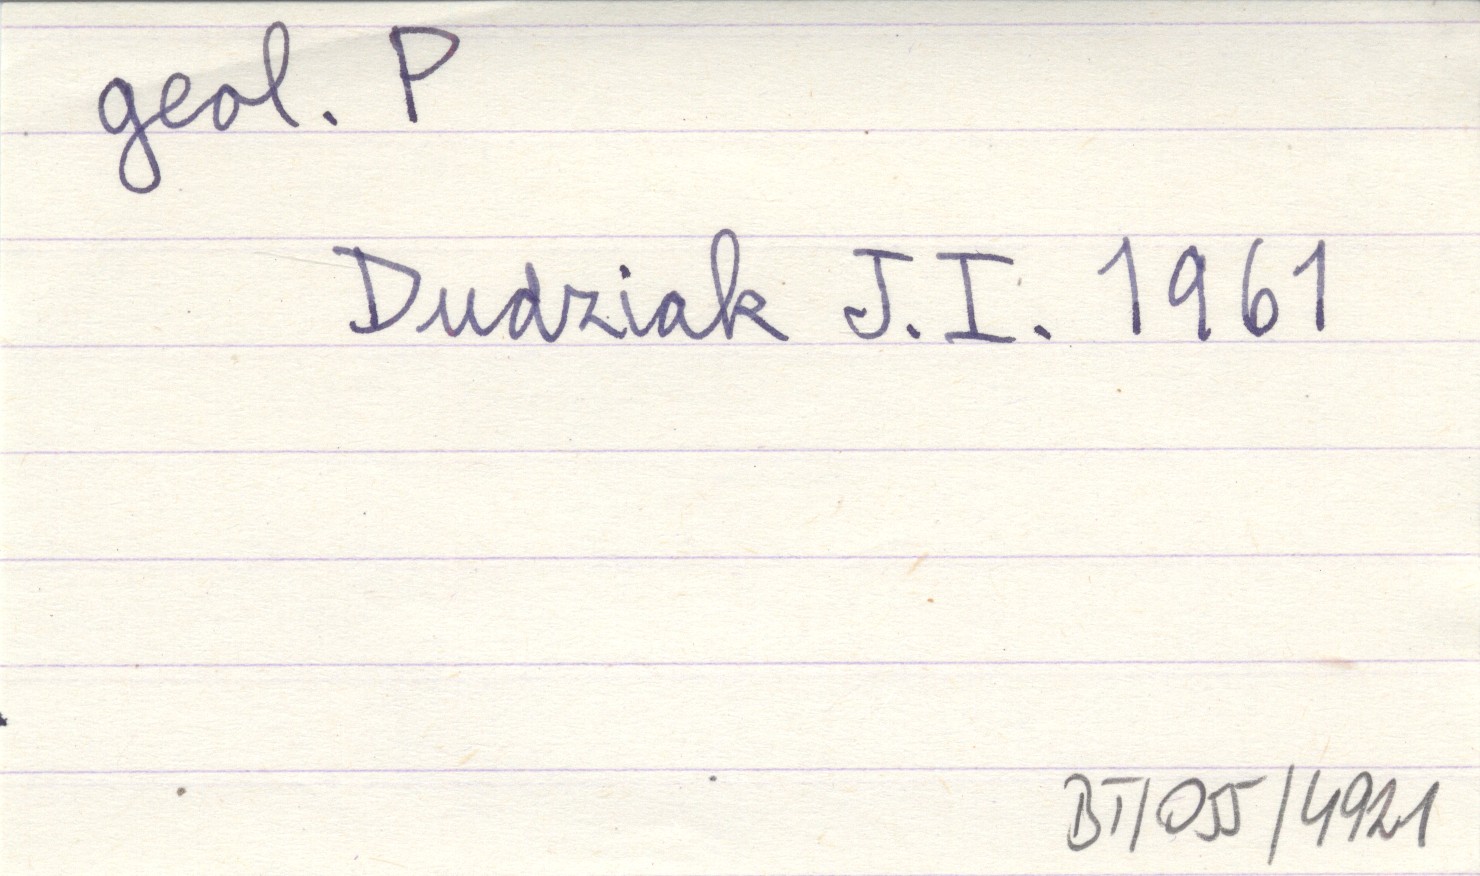 geol. P
Dudziak J.I. 1961
BT/055/4921